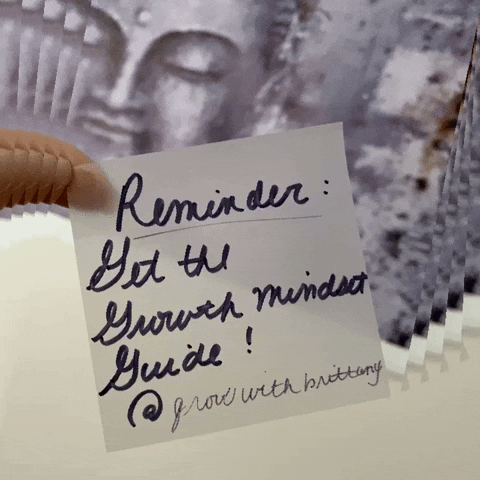 Reminder:
Get the
Growth mindset
Guide!
@growwithbrittany